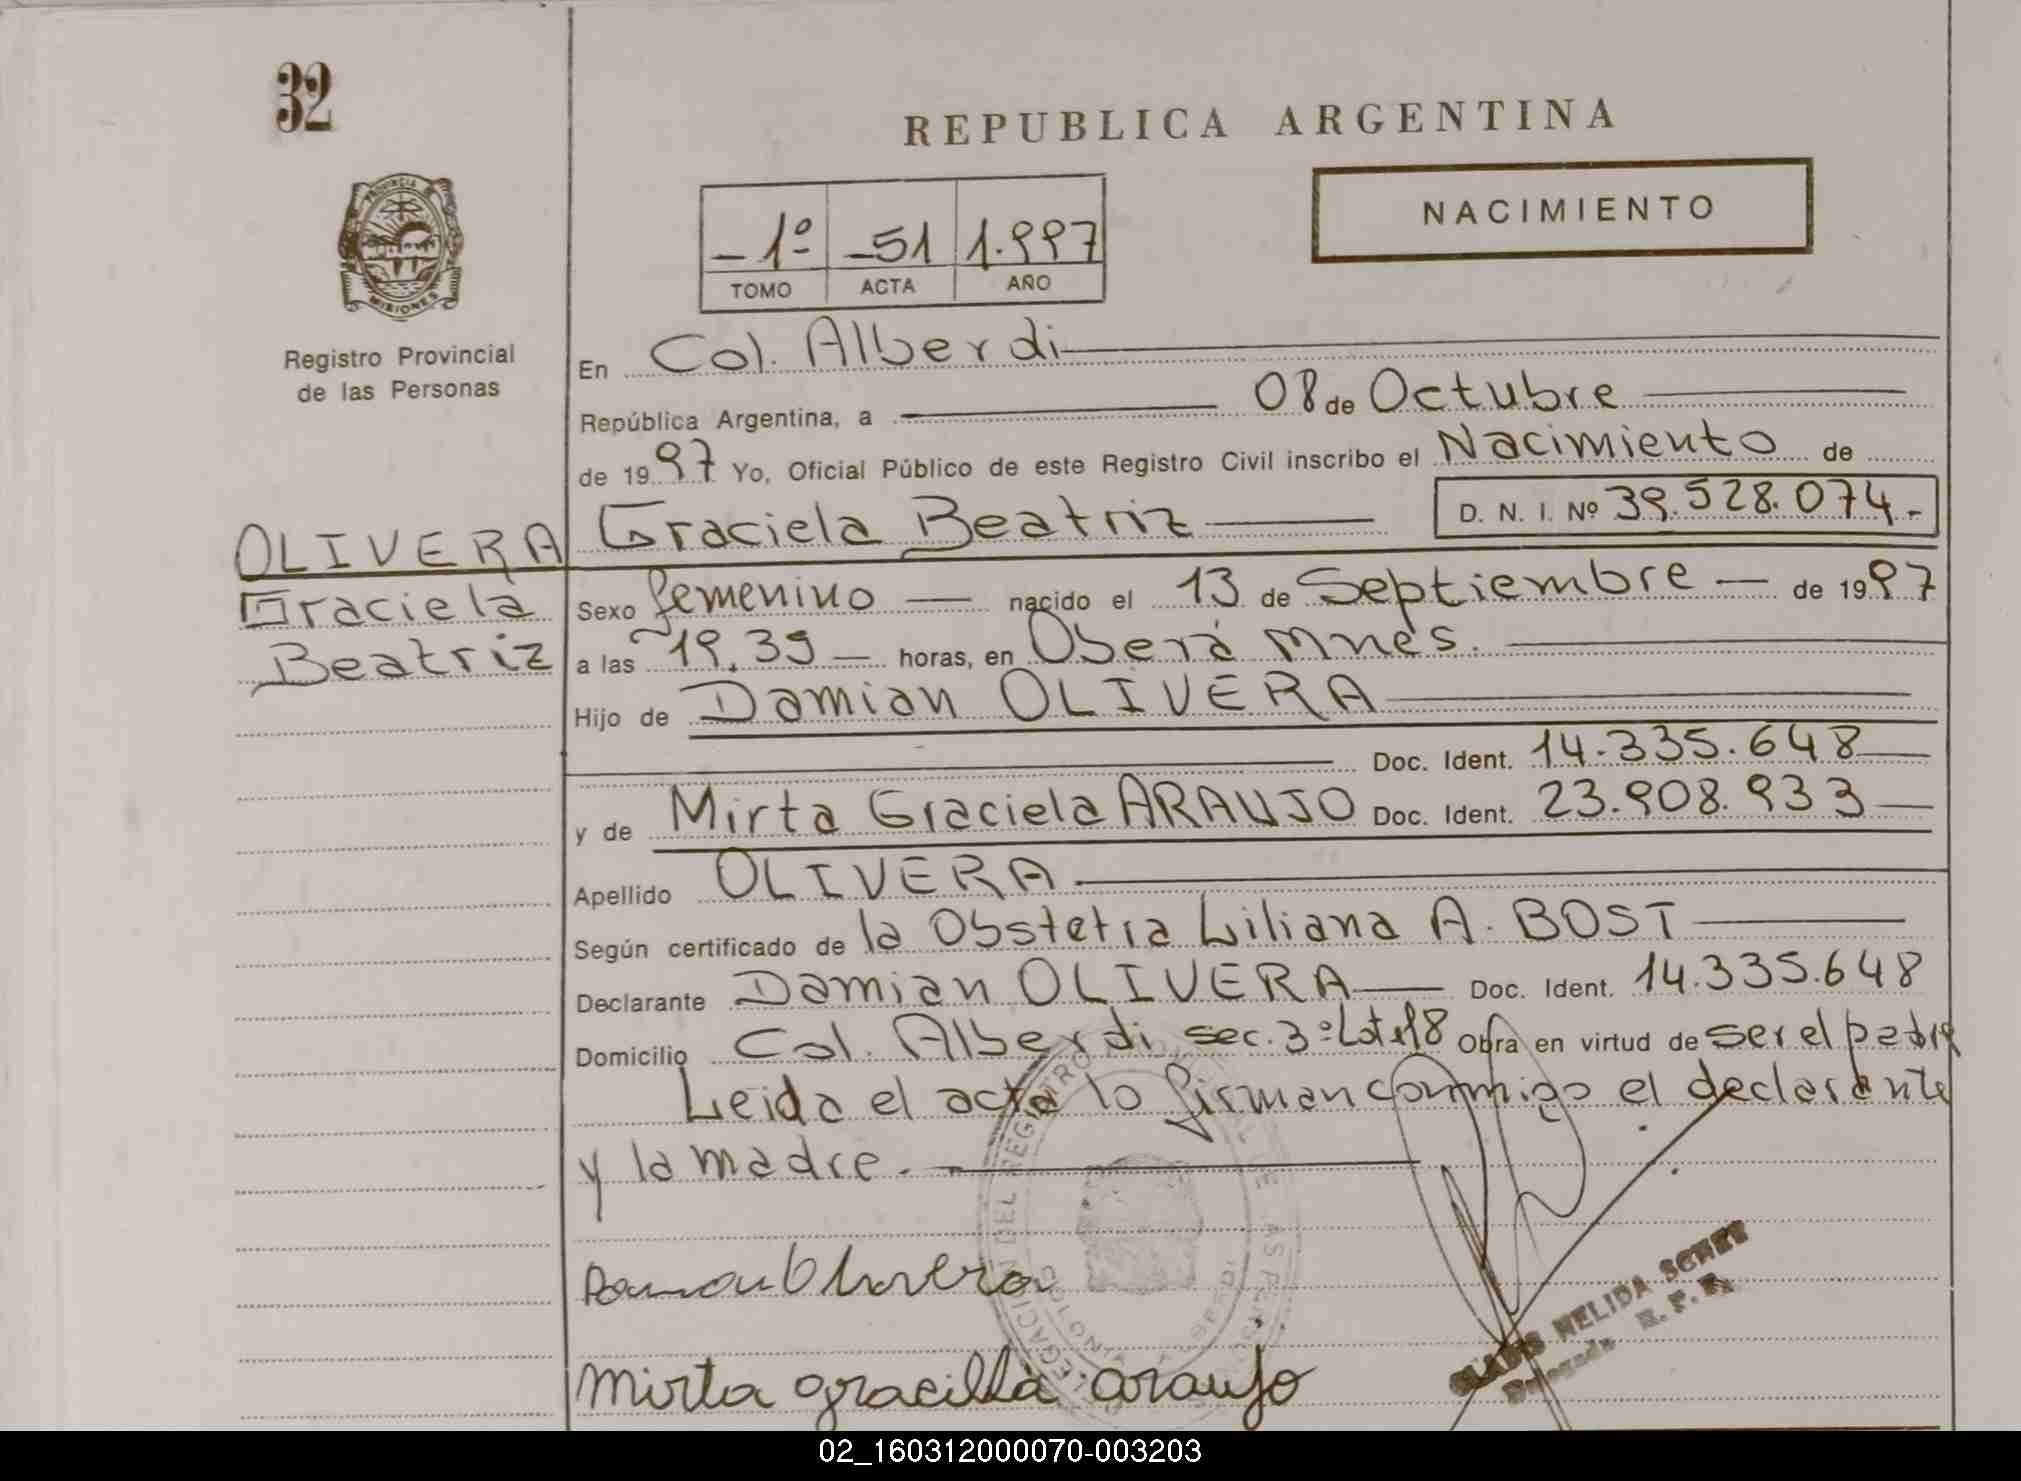 32
REPUBLICA ARGENTINA
NACIMIENTO
PROVINCIA DE
MISIONES
Registro Provincial
de las Personas
- 1º -51 1.997
TOMO ACTA AÑO
En Col. Alberdi
República Argentina, a 08 de Octubre
de 1997 Yo, Oficial Público de este Registro Civil inscribo el Nacimiento de
OLIVERA
Graciela
Beatriz
Graciela Beatriz D. N. I. Nº 39.528.074.-
Sexo femenino — nacido el 13 de Septiembre — de 1997
a las 19.39 — horas, en Oberá Mnes.
Hijo de Damian OLIVERA
Doc. Ident. 14.335.648
y de Mirta Graciela ARAUJO Doc. Ident. 23.908.933
Apellido OLIVERA
Según certificado de la Obstetra Liliana A. BOST
Declarante Damian OLIVERA — Doc. Ident. 14.335.648
Domicilio Col. Alberdi sec. 3º Lote 18 Obra en virtud de ser el padre
Leida el acta lo firman conmigo el declarante
y la madre.
Damian Olivera
mirta gracilla araujo
GLADIS NELIDA
Delegada R. P. P.
02_160312000070-003203